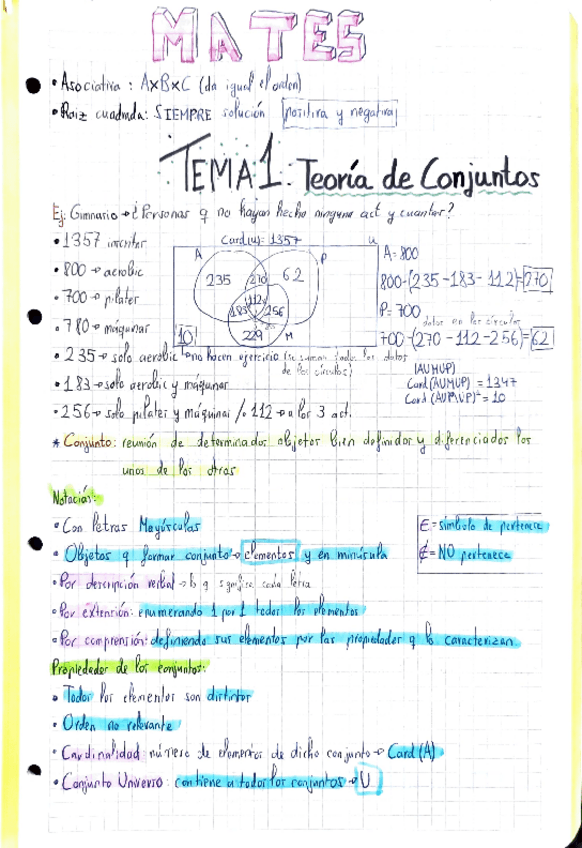 MATES
• Asociativa: AxBxC (da igual el orden)
• Raiz cuadrada: SIEMPRE solución positiva y negativa
TEMA 1: Teoría de Conjuntos
Ej: Gimnasio → ¿Personas q no hayan hecho ninguna act y cuantas?
• 1357 inscritas
Card(U)= 1357
U
A
P
M
235
270
62
112
183
256
229
10
A=800
• 800 → aerobic
800-(235-183-112)=270
• 700 → pilates
P=700
datos en los círculos
• 780 → máquinas
700-(270-112-256)=62
• 235 → solo aerobic
→ no hacen ejercicio (se suman todos los datos
de los círculos)
(AUMUP)
• 183 → solo aerobic y máquinas
Card(AUMUP) = 1347
• 256 → solo pilates y máquinas / • 112 → a los 3 act.
* Conjunto: reunión de determinados objetos bien definidos y diferenciados los
unos de los otros
Notación:
• Con letras Mayúsculas
∈= símbolo de pertenece
• Objetos q forman conjunto → elementos y en minúscula
∉= NO pertenece
• Por descripción verbal → lo q significa cada letra
• Por extensión: enumerando 1 por 1 todos los elementos
• Por comprensión: definiendo sus elementos por las propiedades q lo caracterizan
Propiedades de los conjuntos:
• Todos los elementos son distintos
• Orden no relevante
• Cardinalidad: número de elementos de dicho conjunto → Card(A)
• Conjunto Universo: contiene a todos los conjuntos → U